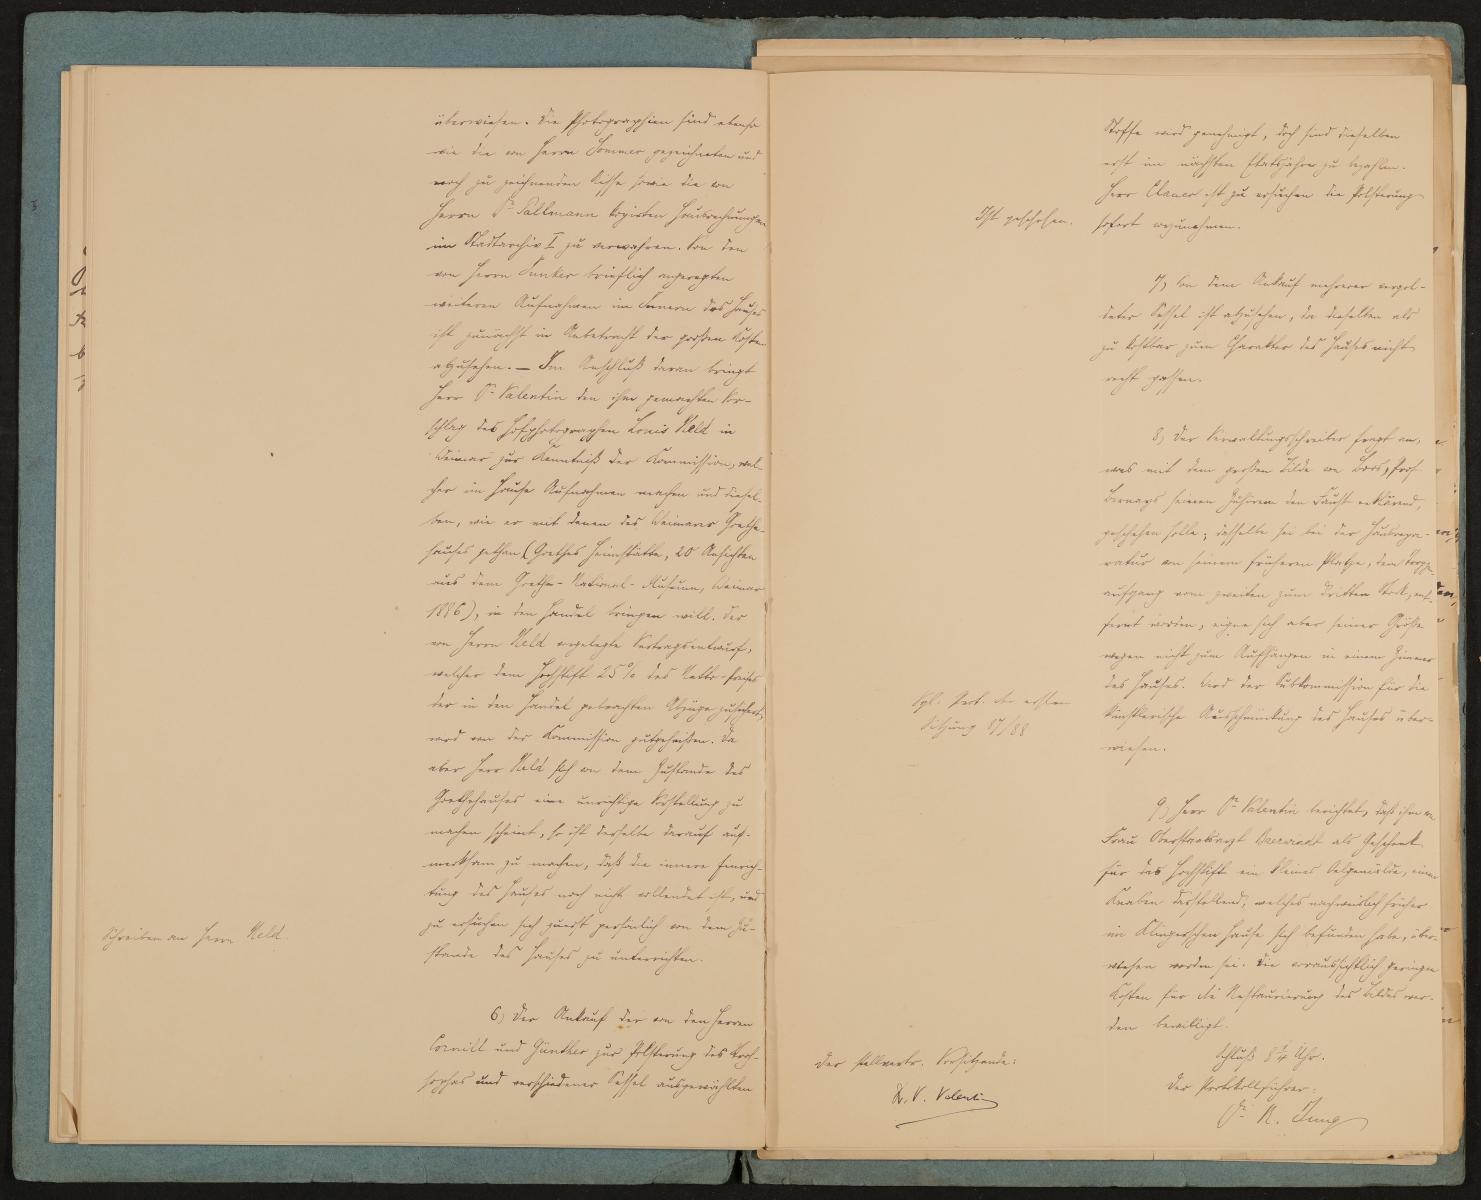 überwiesen. Die Photographien sind ebenso
wie die von Herrn Sommer gezeichneten und
noch zu zeichnenden Risse sowie die von
Herrn Dr Pallmann kopirten Hausrechnungen
im Stadtarchiv I zu verwahren. Von den
von Herrn Junker brieflich angeregten
weiteren Aufnahmen im Innern des Hauses
ist zunächst in Anbetracht der großen Kosten
abzusehen. — Im Anschluß daran bringt
Herr Dr Valentin den ihm gemachten Vor-
schlag des Hofphotographen Louis Held in
Weimar zur Kenntniß der Kommission, wel-
cher im Hause Aufnahmen machen und diesel-
ben, wie er mit denen des Weimarer Goethe-
hauses gethan (Goethes Heimstätte, 20 Ansichten
aus dem Goethe-National-Museum, Weimar
1886), in den Handel bringen will. Der
von Herrn Held vorgelegte Vertragsentwurf,
welcher dem Hochstift 25% des Netto-Preises
der in den Handel gebrachten Abzüge zusichert,
wird von der Kommission gutgeheißen. Da
aber Herr Held sich von dem Zustande des
Goethehauses eine unrichtige Vorstellung zu
machen scheint, so ist derselbe darauf auf-
merksam zu machen, daß die innere Einrich-
tung des Hauses noch nicht vollendet ist, und
zu ersuchen sich zuerst persönlich von dem Zu-
stande des Hauses zu unterrichten.
Schreiben an Herrn Held.
6, Der Ankauf der von den Herren
Cornill und Günther zur Polsterung des
sophas und verschiedener Sessel ausgewählten
Stoffe wird genehmigt, doch sind dieselben
erst im nächsten Etatsjahre zu bezahlen.
Herr Clauer ist zu ersuchen die Polsterung
sofort vorzunehmen.
Ist geschehen.
7, Von dem Ankauf mehrerer vergol-
deter Sessel ist abzusehen, da dieselben als
zu kostbar zum Charakter des Hauses nicht
recht passen.
8, Der Verwaltungsschreiber fragt an,
was mit dem großen Bilde von Prof.
Bernays seinen Zuhörern den Faust erklärend,
geschehen solle; dasselbe sei bei der Hausrepa-
ratur von seinem früheren Platze, dem Treppen-
aufgang vom zweiten zum dritten Stock, ent-
fernt worden, eigne sich aber seiner Größe
wegen nicht zum Aufhängen in einem Zimmer
des Hauses. Wird der Subkommission für die
künstlerische Ausschmückung des Hauses über-
wiesen.
Vgl. Prot. der ersten
Sitzung 87/88
9, Herr Dr Valentin berichtet, daß ihm von
Frau Oberstabsarzt als Geschenk
für das Hochstift ein kleines Oelgemälde, einen
Knaben darstellend, welches nachweislich früher
im Klingerschen Hause sich befunden habe, über-
wiesen worden sei. Die voraussichtlich geringen
Kosten für die Restaurierung des Bildes wer-
den bewilligt.
Schluß 8 1/4 Uhr.
Der stellvertr. Vorsitzende:
Dr. V. Valentin
Der Protokollführer:
Dr R. Jung